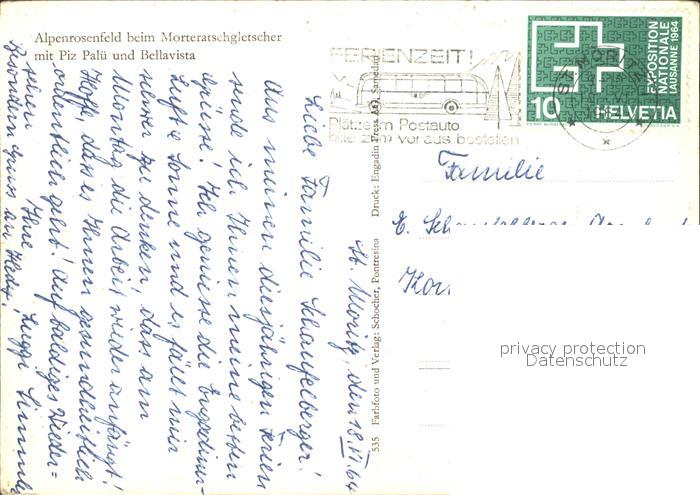 Alpenrosenfeld beim Morteratschgletscher
mit Piz Palü und Bellavista
FERIENZEIT!
Plätze im Postauto
bitte zum voraus bestellen
ST. MORITZ
EXPOSITION
NATIONALE
LAUSANNE 1964
10
HELVETIA
535 Farbfoto und Verlag: Schocher, Pontresina Druck: Engadin Press AG, Samedan
St. Moritz, den 18. VI. 64
Liebe Familie Schaufelberger!
Aus meinen diesjährigen Ferien
sende ich Ihnen meine besten
Grüsse! Ich geniesse die Engadiner-
Luft & Sonne und es fällt mir
schwer zu denken, dass am
Montag die Arbeit wieder anfängt!
Hoffe, dass es Ihnen gesundheitlich
ordentlich geht! Auf baldiges Wieder=
sehen Ihre
Besondern Gruss an Hedy.
Familie
E.
privacy protection
Datenschutz